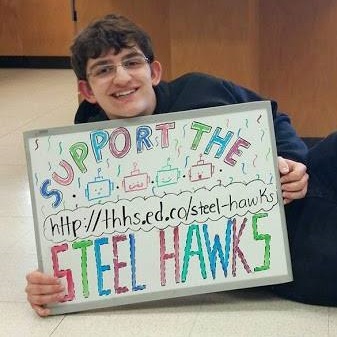 SUPPORT THE
http://thhs.ed.co/steel-hawks
STEEL HAWKS